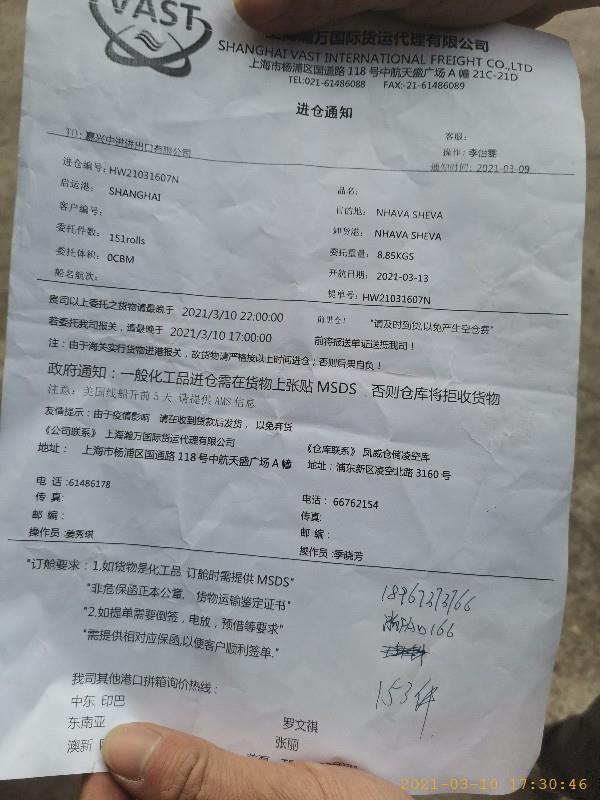 VAST
上海瀚万国际货运代理有限公司
SHANGHAI VAST INTERNATIONAL FREIGHT CO.,LTD
上海市杨浦区国道路 118 号中航天盛广场 A 幢 21C-21D
TEL:021-61486088 FAX:-21-61486089
进仓通知
客服:
TO: 嘉兴中洪进出口有限公司
操作: 李怡雯
通知时间: 2021-03-09
进仓编号: HW21031607N
品名:
启运港: SHANGHAI
目的地: NHAVA SHEVA
客户编号:
卸货港: NHAVA SHEVA
委托件数: 151rolls
委托重量: 8.85KGS
委托体积: 0CBM
开航日期: 2021-03-13
船名航次:
提单号: HW21031607N
贵司以上委托之货物请最晚于 2021/3/10 22:00:00 前进仓! "请及时到货,以免产生空仓费"
若委托我司报关,请最晚于 2021/3/10 17:00:00 前将报送单证送抵我司!
注:由于海关实行货物进港报关,故货物请严格按以上时间进仓;否则后果自负!
政府通知:一般化工品进仓需在货物上张贴 MSDS,否则仓库将拒收货物
注意:美国线船开前 5 天 请提供 AMS 信息
友情提示:由于疫情影响 请在收到货款后发货,以免弃货
《公司联系》上海瀚万国际货运代理有限公司
《仓库联系》凤威仓储凌空库
地址: 上海市杨浦区国通路 118 号中航天盛广场 A 幢
地址:浦东新区凌空北路 3160 号
电 话 :61486178
电话: 66762154
传 真:
传真:
邮 编:
邮 编:
操作员 :姜秀琪
操作员 :季晓芳
"订舱要求:1.如货物是化工品 订舱时需提供 MSDS"
"非危保函正本公章, 货物运输鉴定证书"
"2.如提单需要倒签,电放,预借等要求"
"需提供相对应保函,以便客户顺利签单."
18967373766
153件
我司其他港口拼箱询价热线:
中东 印巴
东南亚
罗文祺
澳新
张丽
2021-03-10 17:30:46